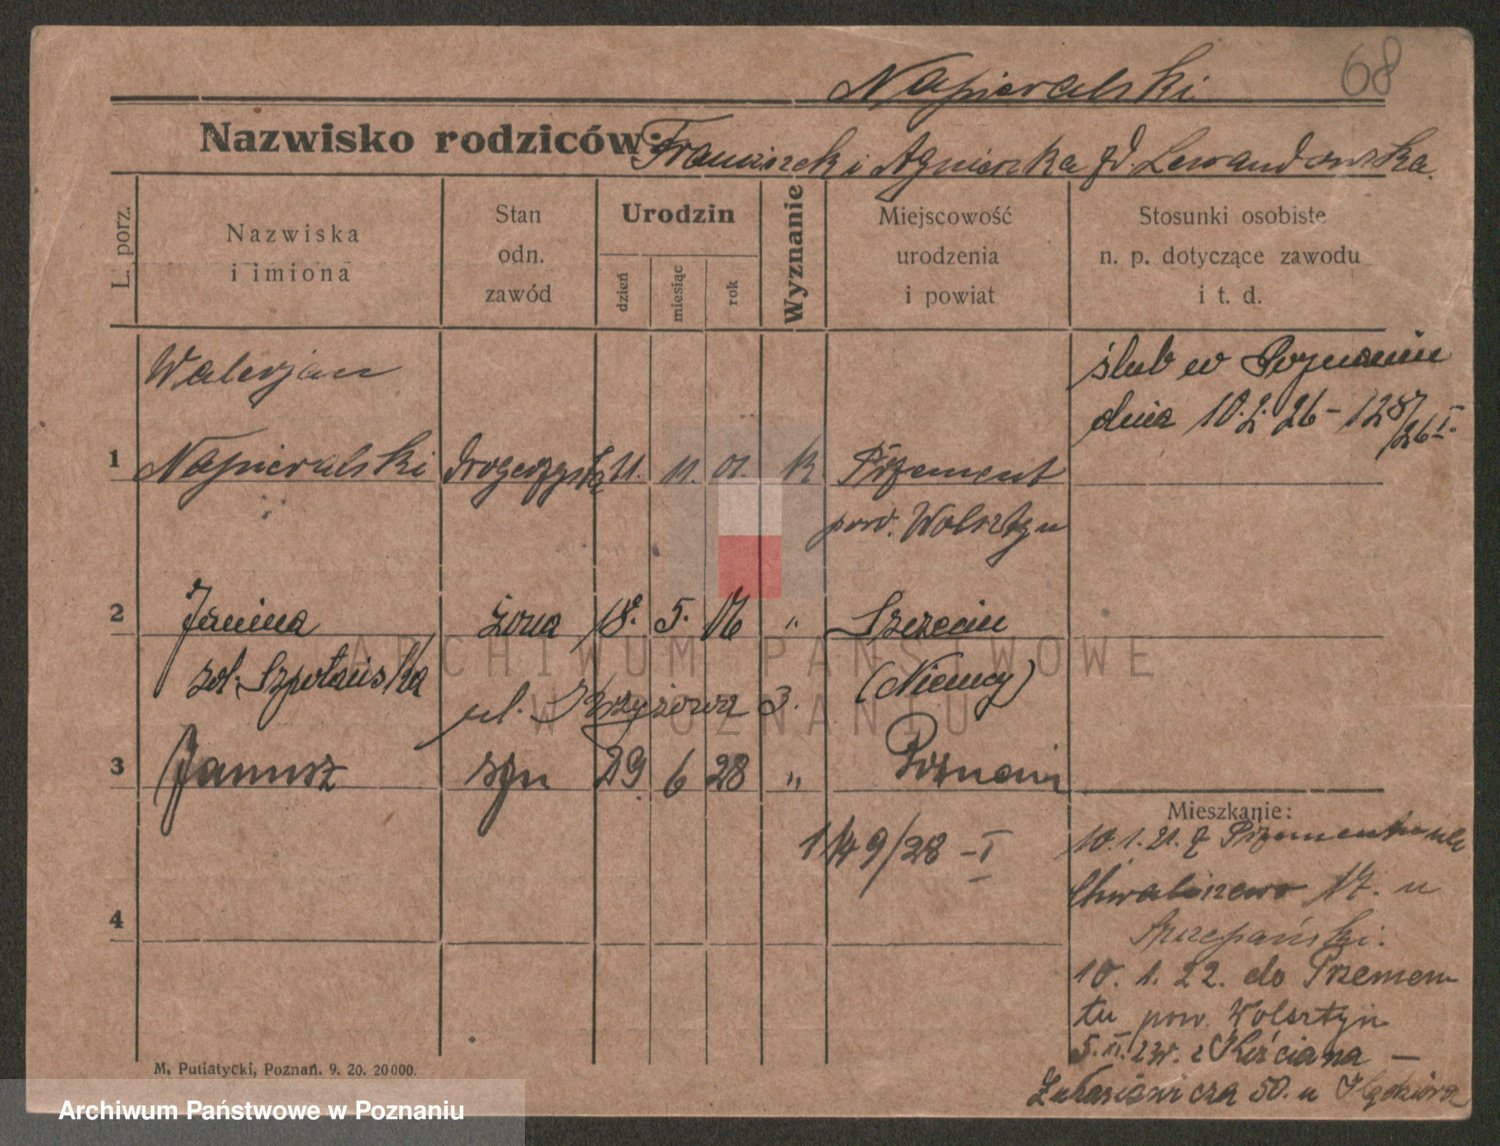 Napieralski
68
Nazwisko rodziców: Franciszek i Agnieszka zd. Lewandowska.
L. porz.
Nazwiska
i imiona
Stan
odn.
zawód
Urodzin
dzień
miesiąc
rok
Wyznanie
Miejscowość
urodzenia
i powiat
Stosunki osobiste
n. p. dotyczące zawodu
i t. d.
Walerjan
ślub w Poznaniu
dnia 10.2.26 - 1287/26 I.
1 Napieralski drogerzysta 21. 11. 01. k Przement
pow. Wolsztyn
2 Janina żona 18. 5. 06 " Szczecin
zd. Szpotańska (Niemcy)
ul. Krzyżowa 3.
3 Janusz syn 29 6 28 " Poznań
1149/28 - I
4
Mieszkanie:
10.1.21. z Przementu ul.
Chwaliszewo 17. u
Szczepański.
10. 1. 22. do Przemen
tu pow. Wolsztyn
z Kościana —
Łukasiewicza 50. u
M. Putiatycki, Poznań. 9. 20. 20000.
ARCHIWUM PAŃSTWOWE
W POZNANIU
Archiwum Państwowe w Poznaniu